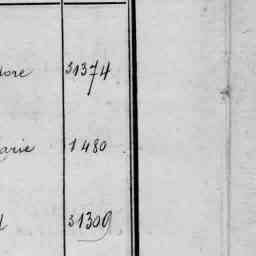 dore 31374
arie 1480
31309